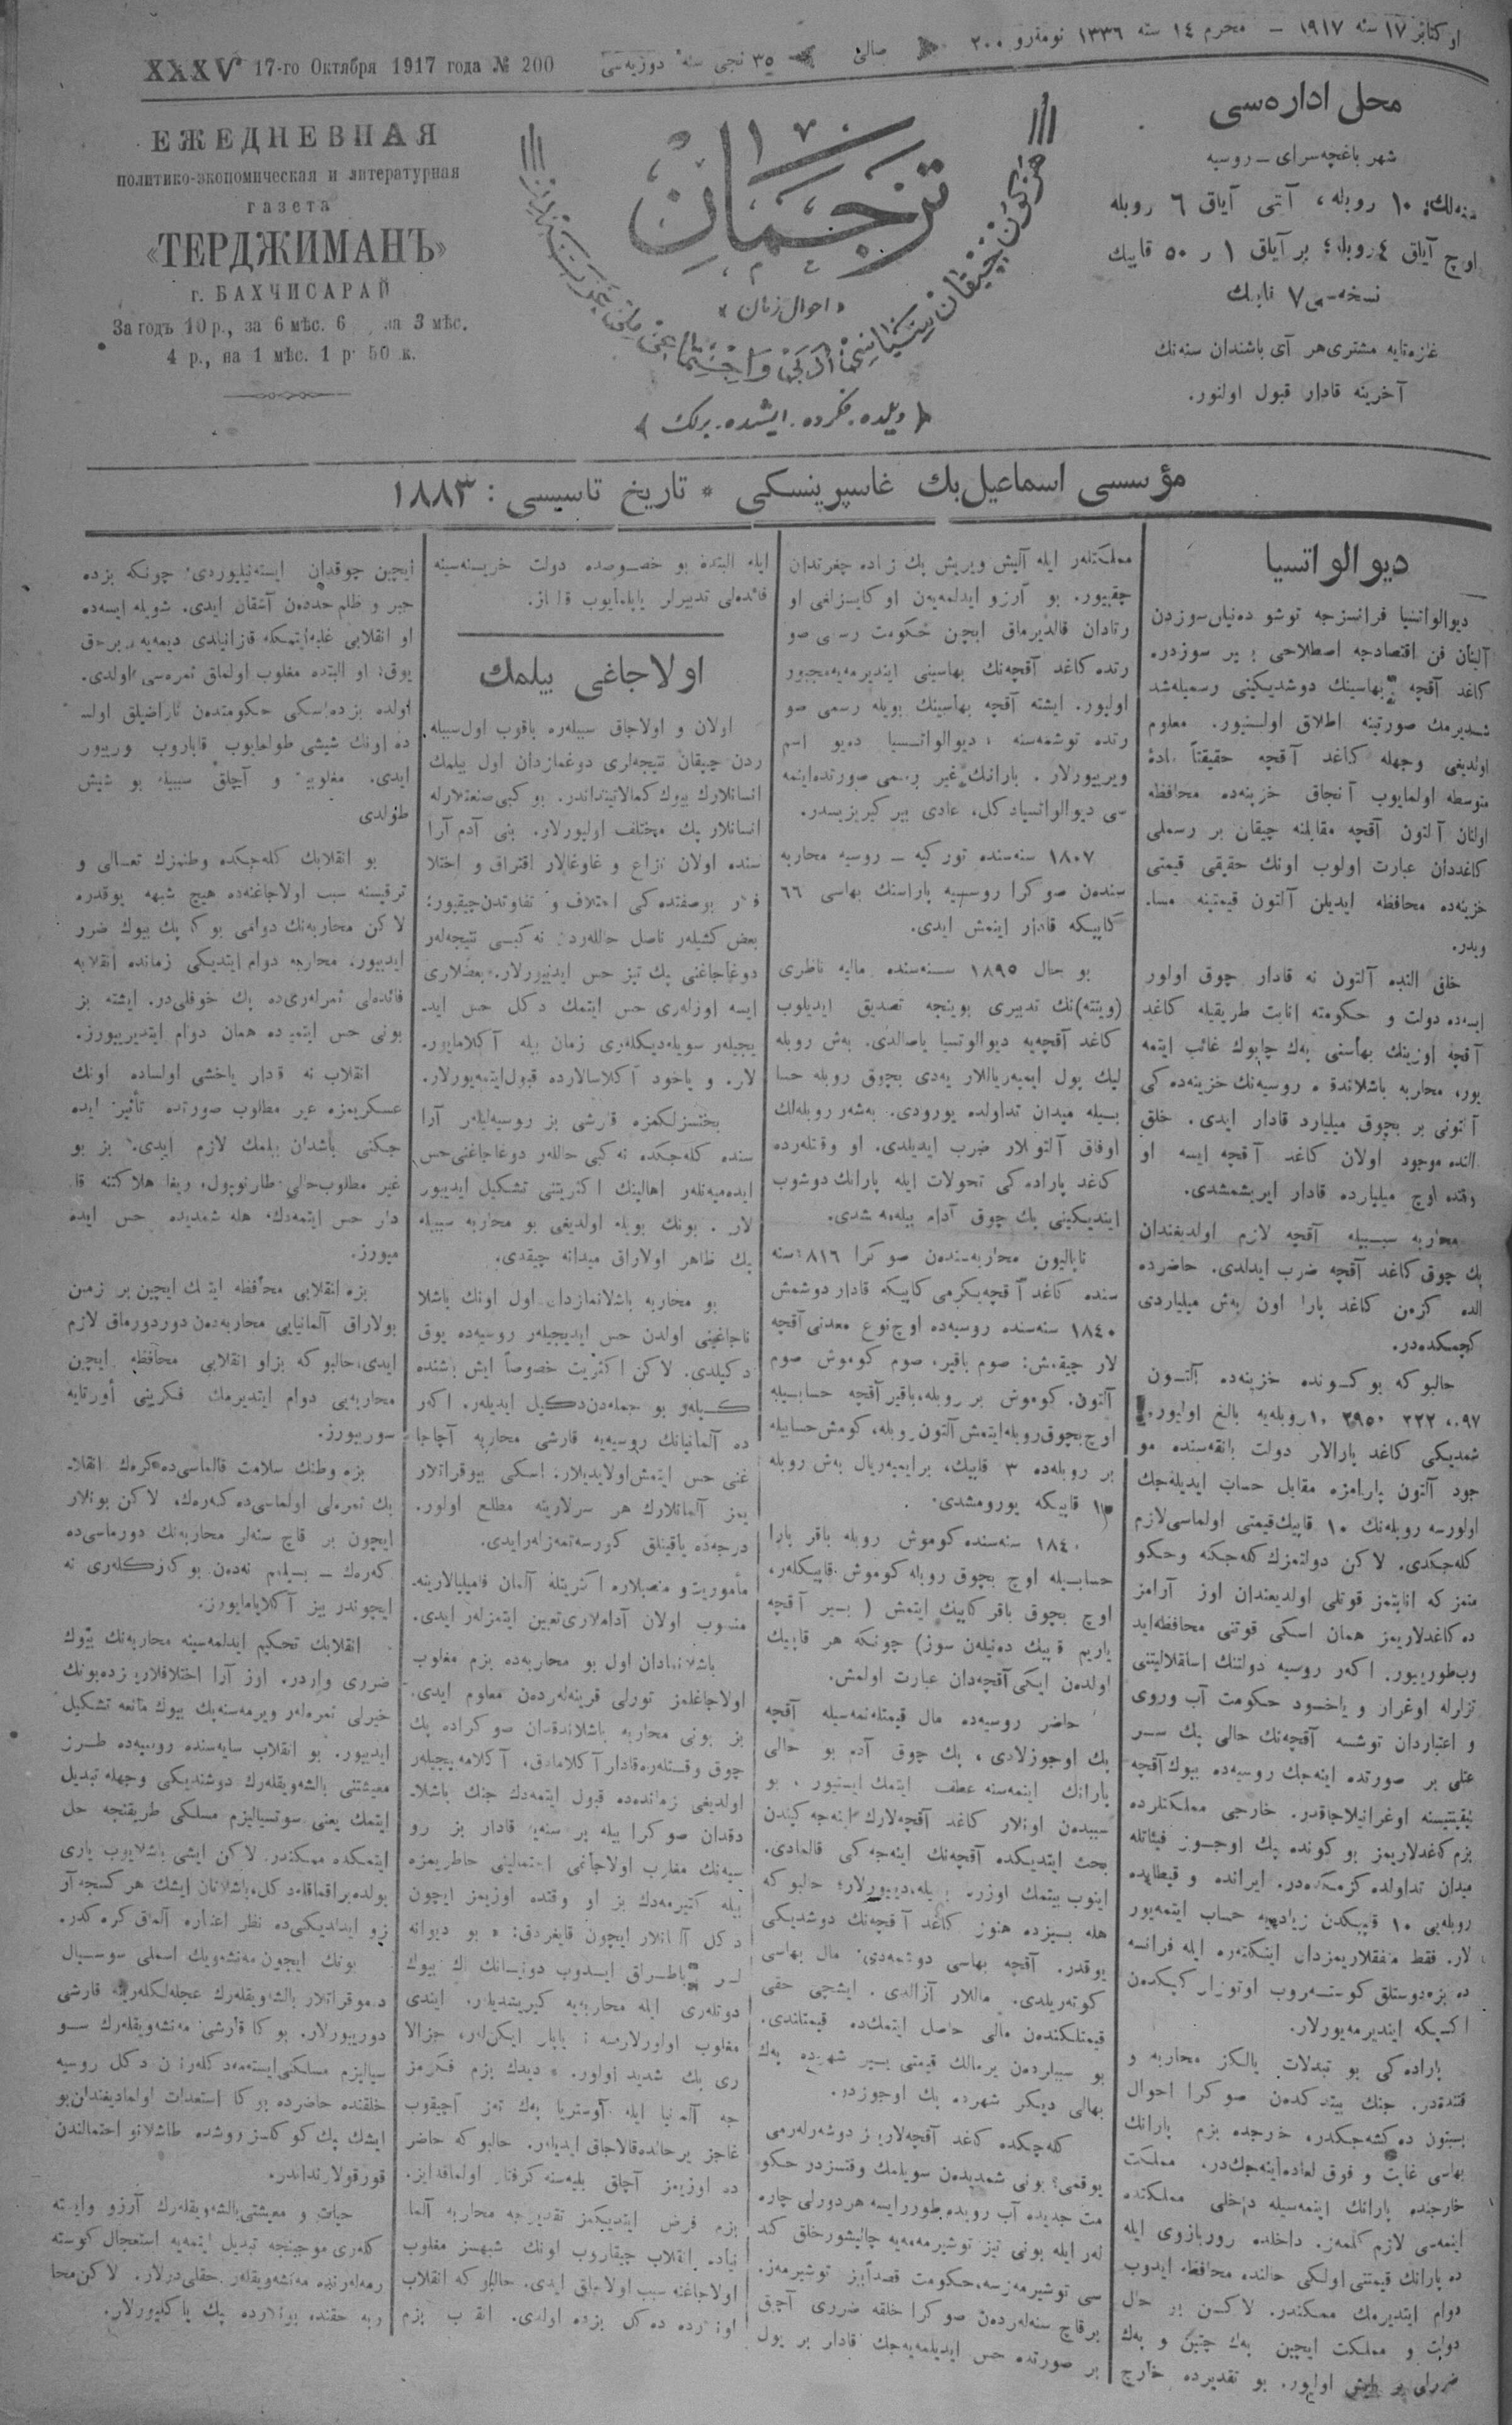 اوكتابر ١٧ سنه ١٩١٧ – محرم ١٤ سنه ١٣٣٦ نومەرو ٢٠٠
صالی
٣٥ نجی سنهٔ دوزیه‌سی
XXXV 17-го Октября 1917 года № 200
ЕЖЕДНЕВНАЯ
политико-экономическая и литературная
газета
«ТЕРДЖИМАНЪ»
г. БАХЧИСАРАЙ
За годъ 10 р., за 6 мѣс. 6 на 3 мѣс.
4 р., на 1 мѣс. 1 р 50 к.
ترجمان
١٧
«احوال زمان»
هر كون چیقان سیاسی، ادبی و اجتماعی
دیلده. فكرده. ایشده. برلك
محل اداره‌سی
شهر باغچه‌سرای ــ روسیه
سنه‌لك: ١٠ روبله، آلتی آیلق ٦ روبله
اوچ آیلق ٤ روبله؛ بر آیلق ١ ر ٥٠ قاپیك
نسخه‌سی ٧ قاپیك
غزه‌تایه مشتری هر آی باشندان سنه‌نك
آخرینه قادار قبول اولنور.
مؤسسی اسماعیل بك غاسپرینسكی * تاریخ تاسیسی: ١٨٨٣
دیوالواتسیا
دیوالواتسیا فرانسزجه توشو ده‌نیلن سوزدن
آلنان فن اقتصادجه اصطلاحی بیر سوزدر.
كاغد آقچه بهاسینك دوشدیكینی رسمیله‌شد
شدیرمك صورتینه اطلاق اولنیور. معلوم
اولدیغی وجهله كاغد آقچه حقیقتاً ماده
متوسطه اولمایوب آنجاق خزینه‌ده محافظه
اولنان آلتون آقچه مقابلنه چیقان بر رسملی
كاغددان عبارت اولوب اونك حقیقی قیمتی
خزینه‌ده محافظه ایدیلن آلتون قیمتینه مسا.
ویدر.
خلق النده آلتون نه قادار چوق اولور
ایسه‌ده دولت و حكومته انابت طریقیله كاغد
آقچه اوزینك بهاسنی پەك چابوك غائب ایتمه
یور، محاربه باشلاندقده روسیه‌نك خزینه‌ده كی
آلتونی بر بچوق میلیارد قادار ایدی. خلق
النده موجود اولان كاغد آقچه ایسه او
وقتده اوچ میلیارده قادار ایریشمشدی.
محاربه سببیله آقچه لازم اولدیغندان
پك چوق كاغد آقچه ضرب ایدلدی. حاضرده
الده كزەن كاغد پارا اون بەش میلیاردی
كچمكده‌در.
حالبو كه بو كونده خزینه‌ده آلتون
شمدیكی كاغد پارالار دولت بانقه‌سنده مو
جود آلتون پارامزه مقابل حساب ایدیله‌جك
اولورسه روبله‌نك ١٠ قاپیك قیمتی اولماسی لازم
كله‌جكدی. لاكن دولتمزك كله‌جكنه وحكو
متمز كه انابتمز قوتلی اولدیغندان اوز آرامز
ده كاغدلاریمز همان اسكی قوتنی محافظه‌اید
وب‌طورییور. اكر روسیه دولتنك استقلالیتنی
تزلزله اوغرار و یاخود حكومت آب و روی
و اعتباردان توشسه آقچه‌نك حالی پك سر
عتلی بر صورتده اینه‌جك روسیه‌ده بیوك آقچه
قیتیسنه اوغرانیلاجاقدر. خارجی مملكتلرده
بزم كاغدلاریمز بو كونده پك اوجوز فیئاتله
میدان تداولده كزمكده‌در. ایرانده و قیطایده
روبله‌یی ١٠ قپیكدن زیاده‌یه حساب ایتمه‌یور
لار. فقط متفقلاریمزدان اینكلتره ایله فرانسه
ده بزه دوستلق كوسترو‌ب اوتوزار كپكدەن
اكسیكه ایندیرمه‌یورلار.
پاراده كی بو تبدلات یالكز محاربه و
قتنده‌در. جنك بیتدكدەن صوكرا احوال
بستون ده‌كشه‌جكدر، خرجده بزم پارانك
بهاسی غایت و فوق العاده اینه‌جك‌در. مملكت
خارجنده پارانك اینمه‌سیله داخلی مملكتده
اینمه‌سی لازم كلمه‌ز. داخلده زوربازوی ایله
ده پارانك قیمتنی اولكی حالنده محافظه ایدوب
دوام ایتدیرمك ممكندر. لاكن بو حال
دولت و مملكت ایچین پەك چتین و پەك
ضررلی بر ایش اولیور. بو تقدیرده خارج
مملكتلەر ایله آلیش ویریش پك زیاده چغرتدان
چقییور. بو آرزو ایدلمەیەن اوكایسزلغی او
رتادان قالدیرماق ایچن حكومت رسمی صو
رتده كاغد آقچه‌نك بهاسینی ایندیرمه‌یه مجبور
اولیور. ایشته آقچه بهاسینك بویله رسمی صو
رتده توشمەسنه «دیوالواتسیا» دەیو اسم
ویرییورلار. پارانك غیر رسمی صورتده‌اینمه
سی دیوالواتسیادكل، عادی بیر كیریزیسدر.
١٨٠٧ سنه‌سنده توركیه ــ روسیه محاربه
سندەن صوكرا روسیه پاراسنك بهاسی ٦٦
كاپیكه قادار اینمش ایدی.
بو حال ١٨٩٥ سنه‌سنده مالیه ناظری
(ویتته)نك تدبیری بوینچه تصدیق ایدیلوب
كاغد آقچه‌یه دیوالوتسیا یاصالدی. بەش روبله
لیك یول ایمپه‌ریاللار یدی بچوق روبله حسا
بسیله میدان تداولده یورودی. بەشەر روبله‌لك
اوفاق آلتونلار ضرب ایدیلدی. او وقتلەرده
كاغد پاراده كی تحولات ایله پارانك دوشوب
ایندیكینی پك چوق آدام بیلەمەمشدی.
ناپالیون محاربه‌سندەن صوكرا ١٨١٦ سنه
سنده كاغد آقچه یكرمی كاپیكه قادار دوشمش
١٨٤٠ سنه‌سنده روسیه‌ده اوچ نوع معدنی آقچه
لار چیقمش: صوم باقیر، صوم كوموش صوم
آلتون. كوموش بر روبله، باقیر آقچه حسابیله
اوچ بچوق روبله ایتمش آلتون روبله، كومش حسابیله
بر روبله‌ده ٣ قاپیك، برایمپەریال بەش روبله
١٥ قاپیكه یورومشدی.
١٨٤٠ سنه‌سنده كوموش روبله باقر پارا
حسابیله اوچ بچوق روبله كوموش قاپیكلەر،
اوچ بچوق باقر كاپیك ایتمش (بیر آقچه
یاریم قپیك دەنیلەن سوز) چونكه هر قاپیك
اولدەن ایكی آقچه‌دان عبارت اولمش.
حاضر روسیه‌ده مال قیمتلەنمه‌سیله آقچه
پك اوجوزلادی، پك چوق آدم بو حالی
پارانك اینمه‌سنه عطف ایتمك ایستیور. بو
سببدەن اونلار كاغد آقچه‌لارك اینەجەكیندن
بحث ایتدیكده آقچه‌نك اینەجەكی قالمادی.
اینوب بیتمك اوزره بیله، دییورلار؛ حالبوكه
هله بیزده هنوز كاغد آقچه‌نك دوشدیكی
یوقدر. آقچه بهاسی دوشمەدی؛ مال بهاسی
كوتەریلدی. ماللار آزالدی. ایشچی حقی
قیمتلكندەن مالی حاصل ایتمك‌ده قیمتلندی.
بو سببلردەن برمالك قیمتی بیر شهرده پەك
بهالی دیكر شهرده پك اوجوزدر.
كله‌چكده كاغد آقچه‌لاریمز دوشەرلەرمی
یوقمی؟ بونی شمدیدەن سویلمك وقتسزدر حكو
مت جدیده آب رویده طورراییسه هردورلی چاره
لەر ایله بونی تیز توشیرمەمەیه چالیشور خلق كند
سی توشیرمەزسه، حكومت قصداً بیز توشیرمەز.
برقاچ سنه‌لەردەن صوكرا خلقه ضرری آچیق
بر صورتده حس ایدیلمەیەجك قادار بر یول
ایله البتده بو خصوصده دولت خزینه‌سینه
فائده‌لی تدبیرلر یاپلمایوب قالماز.
اولاجاغی بیلمك
اولان و اولاجاق سببلەره باقوب اول سببله
ردن چیقان نتیجه‌لری دوغمازدان اول بیلمك
انسانلارك بیوك كمالاتینداندر. بو كبی صنعتلارله
انسانلار پك مختلف اولیورلار. بنی آدم آرا
سنده اولان نزاع و غاوغالار افتراق و اختلا
فلار بوصفتده كی اختلاف و تفاوتدن چیقیور؛
بعض كشیلەر ناصل حاللەردن نه كبی نتیجه‌لەر
دوغاجاغنی پك تیز حس ایدییورلار. بعضلاری
ایسه اوزلەری حس ایتمك دكل حس اید
یجیلەر سویله‌دیكلەری زمان بیله آكلامایور
لار. و یاخود آكلاسالارده قبول ایتمەیورلار.
بختسزلكمزه قارشی بز روسیه‌لیلەر آرا
سنده كله‌جكده نه كبی حاللەر دوغاجاغنی حس
ایدەمیەنلەر اهالینك اكثریتنی تشكیل ایدییور
لار. بونك بویله اولدیغی بو محاربه سببیله
پك ظاهر اولاراق میدانه چیقدی.
بو محاربه باشلانمازدان اول اونك باشلا
ناجاغینی اولدن حس ایدیجیلەر روسیه‌ده یوق
دكیلدی. لاكن اكثریت خصوصاً ایش باشنده
كیلەر بو جمله‌دن دكیل ایدیلەر. اكر
ده آلمانیانك روسیه‌یه قارشی محاربه آچاجا
غنی حس ایتمش اولایدیلار؛ اسكی بیوقراتلار
یمز آلمانلارك هر سرلارینه مطلع اولور.
درجەده یاقینلق كورسەتمەزلەرایدی.
مأموریت و منصبلاره اكثریتله آلمان فامیلیالارینه
منسوب اولان آداملاری تعیین ایتمزلەر ایدی.
باشلانمادان اول بو محاربه‌ده بزم مغلوب
اولاجاغلمز تورلی قرینه‌لەردەن معلوم ایدی.
بز بونی محاربه باشلاندقدان صوكراده پك
چوق وقتلەره‌قادار آكلامادق. آكلامه‌ییجیلەر
اولدیغی زماندەده قبول ایتمه‌دك جنك باشلا
دقدان صوكرا بیله بر سنه‌یه قادار بز رو
سیه‌نك مغلوب اولاجاغی احتمالینی حاطریمزه
بیله كتیرمه‌دك بز او وقتده اوزیمز ایچون
دكل آلمانلار ایچون قایغردق: «بو دیوانه
لر باطراق ایدوب دونیانك اك بیوك
دولتلەری ایله محاربه‌یه كیریشدیلر. ایندی
مغلوب اولورلارسه؛ یاپار ایكن‌لەر، جزالا
ری پك شدید اولور.» دیدك بزم فكرمز
جه آلمانیا ایله آوستریا پەك تەز آچیقوب
عاجز برحالده قالاجاق ایدیلەر. حالبوكه حاضر
ده اوزیمز آچلق بلیه‌سنه كرفتار اولماقدایز.
بزم فرض ایتدیكمز تقدیرجه محاربه آلما
نیاده انقلاب چیقاروب اونك شبهسز مغلوب
اولاجاغنه سبب اولاجاق ایدی. حالبو كه انقلاب
اونلرده دەكل بزده اولدی. انقلاب بزم
ایچین چوقدان ایسته‌نیلیوردی؛ چونكه بزده
جبر و ظلم حددەن آشقان ایدی. شویله ایسه‌ده
او انقلابی غلبه‌ایتمكله قازانیلدی دیمەیه برحق
یوق؛ او البتده مغلوب اولماق ثمره‌سی اولدی.
اولده بزده اسكی حكومتدەن ناراضیلق اولسا
ده اونك شیشی طولمایوب قاباروب ورییور
ایدی. مغلوبیت و آچلق سببیله بو شیش
طولدی
بو انقلابك كله‌جكده وطنمزك تعالی و
ترقیسنه سبب اولاجاغنه‌ده هیچ شبهه یوقدر.
لاكن محاربه‌نك دوامی بوكا پك بیوك ضرر
ایدییور. محاربه دوام ایتدیكی زمانده انقلابه
فائده‌لی ثمره‌لەری‌ده پك خوفلی‌در. ایشته بز
بونی حس ایتمیه‌ده همان دوام ایتدیرییورز.
انقلاب نه قدار یاخشی اولساده اونك
عسكریمزه غیر مطلوب صورتده تأثیر ایده
جكنی باشدان بیلمك لازم ایدی. بز بو
غیر مطلوب حالی طارنوپول، ریغا هلاكتنه قا
دار حس ایتمه‌دك هله شمدیده حس ایده
میورز.
بزه انقلابی محافظه ایتمك ایچین بر زمین
بولاراق آلمانیایی محاربه‌دەن دوردورماق لازم
ایدی، حالبو كه بز او انقلابی محافظه ایچین
محاربه‌یی دوام ایتدیرمك فكرینی اورتایه
سورییورز.
بزه وطنك سلامت قالماسی‌ده كرەك انقلا
بك ثمرەلی اولماسی‌ده كەرەك. لاكن بونلار
ایچون بر قاچ سنه‌لر محاربه‌نك دورماسی‌ده
كەرەك ــ بیلەم نەدەن بو كەرەكلەری نه
ایچوندر بیز آكلایامایورز.
انقلابك تحكیم ایدلمەسینه محاربه‌نك بیوك
ضرری واردر. اوز آرا اختلافلاریمزده‌بونك
خیرلی ثمره‌لەر ویرمه‌سنه‌پك بیوك مانعه تشكیل
ایدییور. بو انقلاب سایه‌سنده روسیه‌ده طرز
معیشتنی بالشەویقلەرك دوشندیكی وجهله تبدیل
ایتمك یعنی سوتسیالیزم مسلكی طریقنجه حل
ایتمكده ممكندر. لاكن ایشی باشلایوب یاری
یولده‌براقماق‌ده دكل، باشلانان ایشك هركسجه آر
زو ایدلدیكی‌ده نظر اعتباره آلماق كرەكدر.
بونك ایچون مەنشەویك اسملی سوسیال
دەموقراتلار بالشەویقلەرك عجله‌لكلەرینه قارشی
دورییورلار. بوكا قارشی مەنشەویقلەرك سو
سیالیزم مسلكنی ایستەمەدكلەرندەن دكل روسیه
خلقنده حاضرده بوكا استعدات اولمادیغندان‌بو
ایشك پك كوكسز روشده طاشلانو احتمالندن
قورقولارنداندر.
حیات و معیشتی‌بالشەویقلەرك آرزو وایسته
كلەری موجبنجه تبدیل ایتمەیه استعجال كوسته
رمه‌لەرنده مەنشەویقلەر حقلی‌درلار. لاكن محا
ربه حقنده بونلارده پك یاكلیورلار.